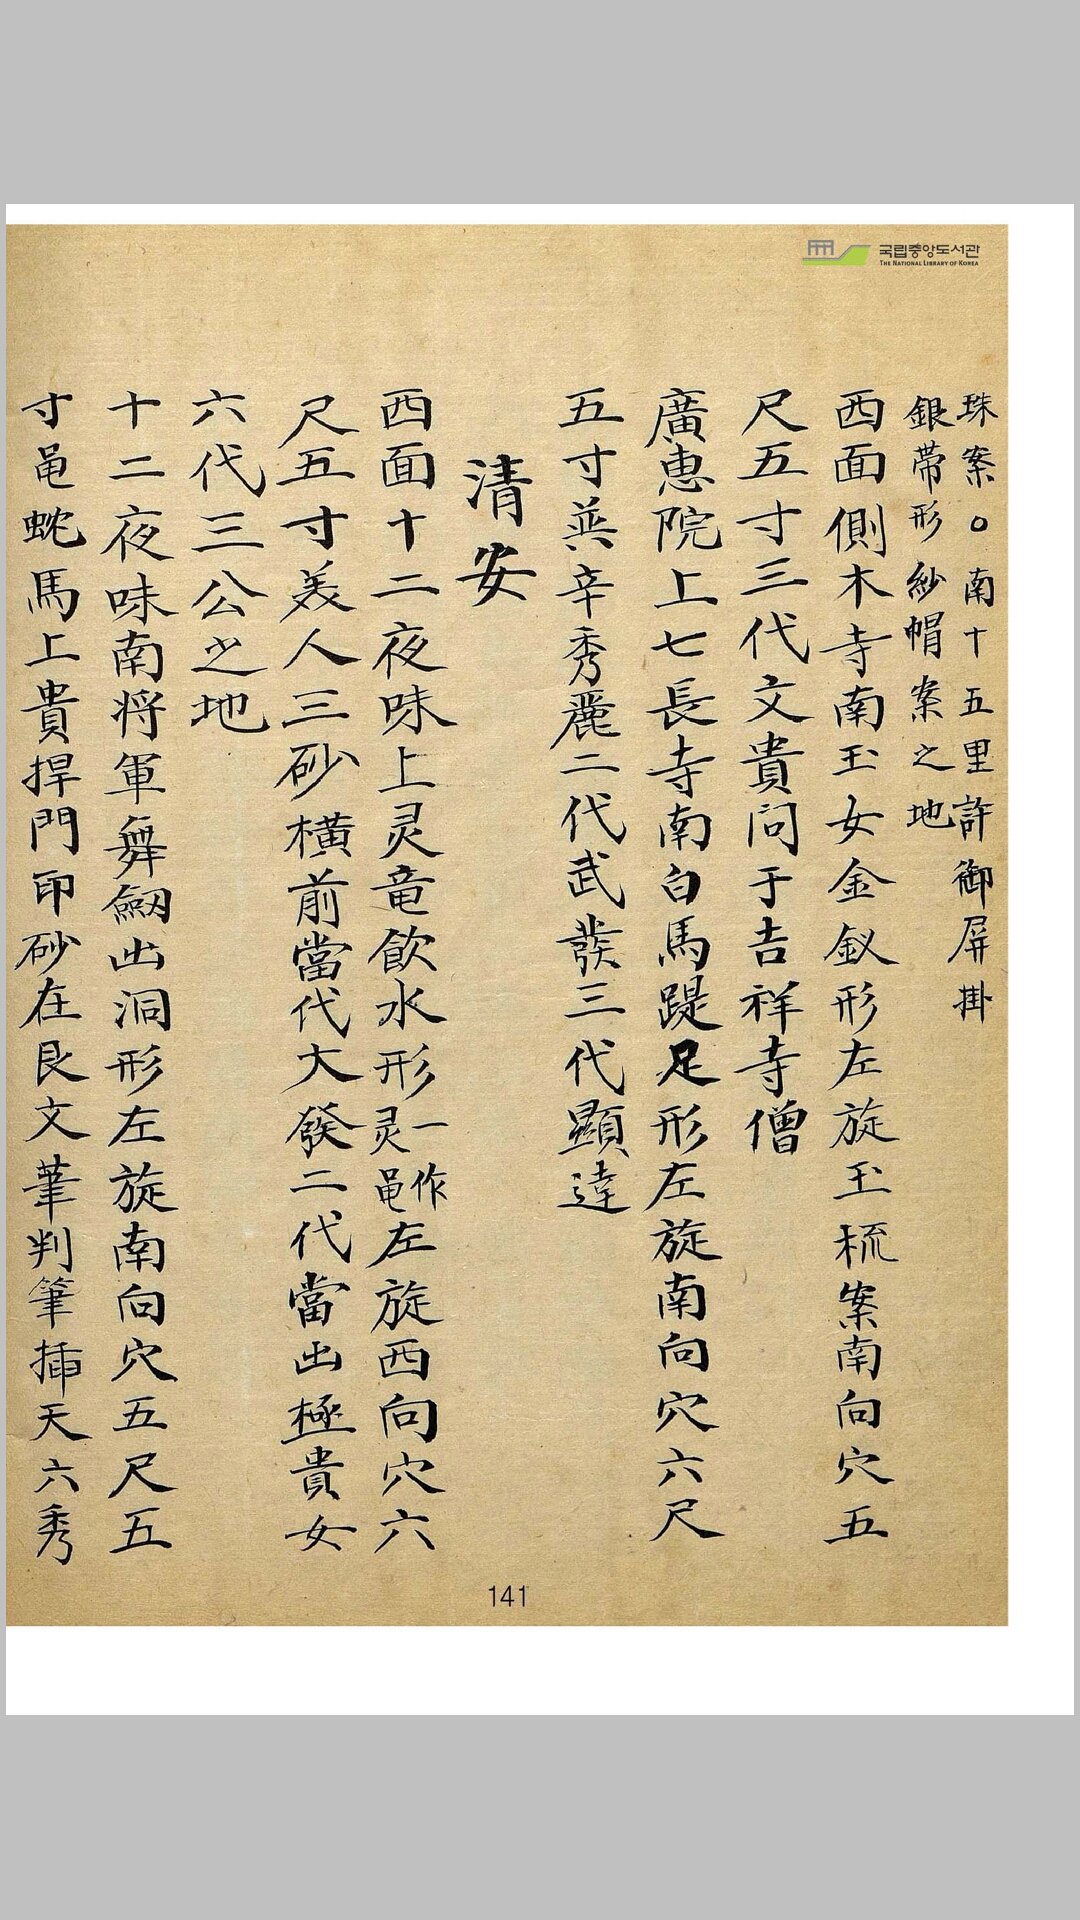 국립중앙도서관
THE NATIONAL LIBRARY OF KOREA
珠案○南十五里許御屏掛
銀帶形紗帽案之地
西面側木寺南玉女金釵形左旋玉梳案南向穴五
尺五寸三代文貴问于吉祥寺僧
廣惠院上七長寺南白馬踶足形左旋南向穴六尺
五寸巽辛秀麗二代武發三代顯達
清安
西面十二夜味上灵竜飲水形一作灵黽左旋西向穴六
尺五寸美人三砂橫前當代大發二代當出極貴女
六代三公之地
十二夜味南将軍舞劔出洞形左旋南向穴五尺五
寸黽蛇馬上貴捍門印砂在艮文筆判筆插天六秀
141